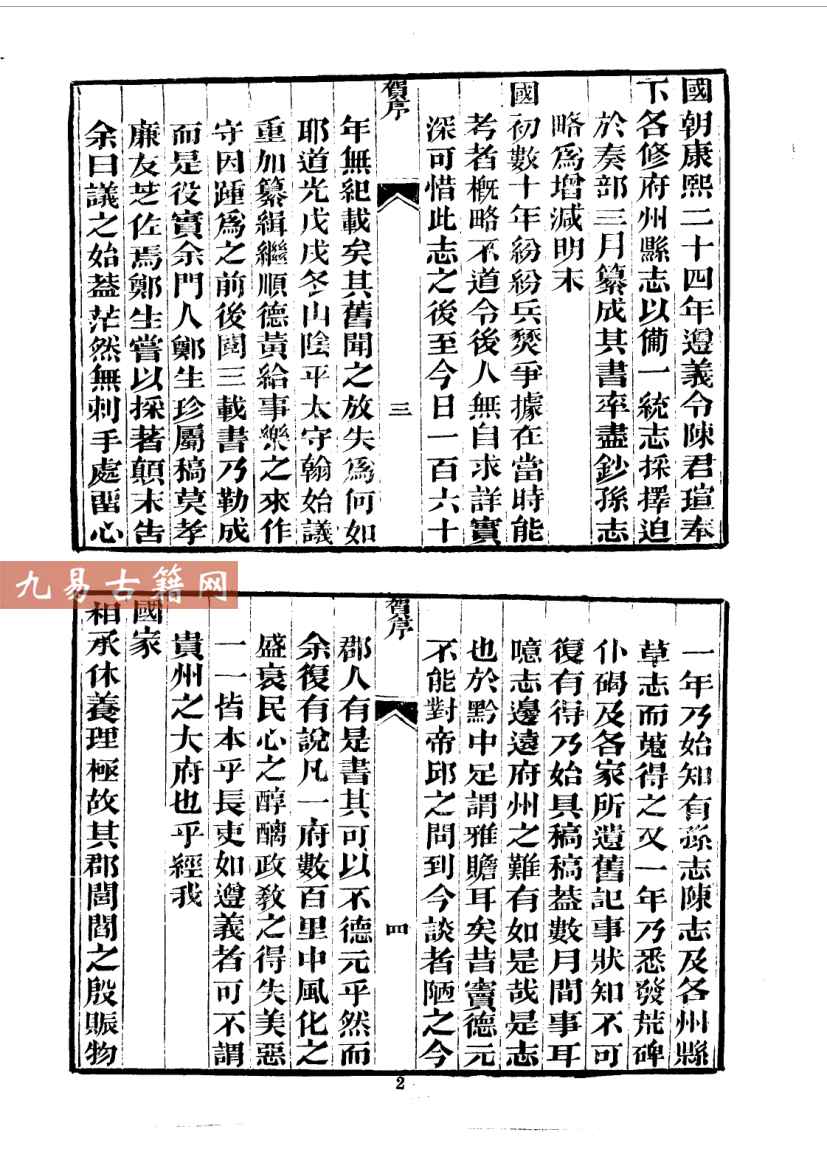 國朝康熙二十四年遵義令陳君瑄奉
下各修府州縣志以備一統志採擇迫
於奏部三月纂成其書率盡鈔孫志
略爲增減明末
國初數十年紛紛兵燹爭據在當時能
考者概略不道令後人無自求詳實
深可惜此志之後至今日一百六十
賀序
三
年無紀載矣其舊聞之放失爲何如
耶道光戊戌冬山陰平太守翰始議
重加纂緝繼順德黃給事樂之來作
守因踵爲之前後閱三載書乃勒成
而是役實余門人鄭生珍屬稿莫孝
廉友芝佐焉鄭生嘗以採著顛末告
余曰議之始葢茫然無刺手處畱心
九易古籍网
一年乃始知有孫志陳志及各州縣
草志而蒐得之又一年乃悉發荒碑
仆碣及各家所遺舊記事狀知不可
復有得乃始具稿稿葢數月間事耳
噫志邊遠府州之難有如是哉是志
也於黔中足謂雅贍耳矣昔竇德元
不能對帝邱之問到今談者陋之今
賀序
四
郡人有是書其可以不德元乎然而
余復有說凡一府數百里中風化之
盛衰民心之醇醨政敎之得失美惡
一一皆本乎長吏如遵義者可不謂
貴州之大府也乎經我
國家
相承休養理極故其郡閭閻之殷賑物
2